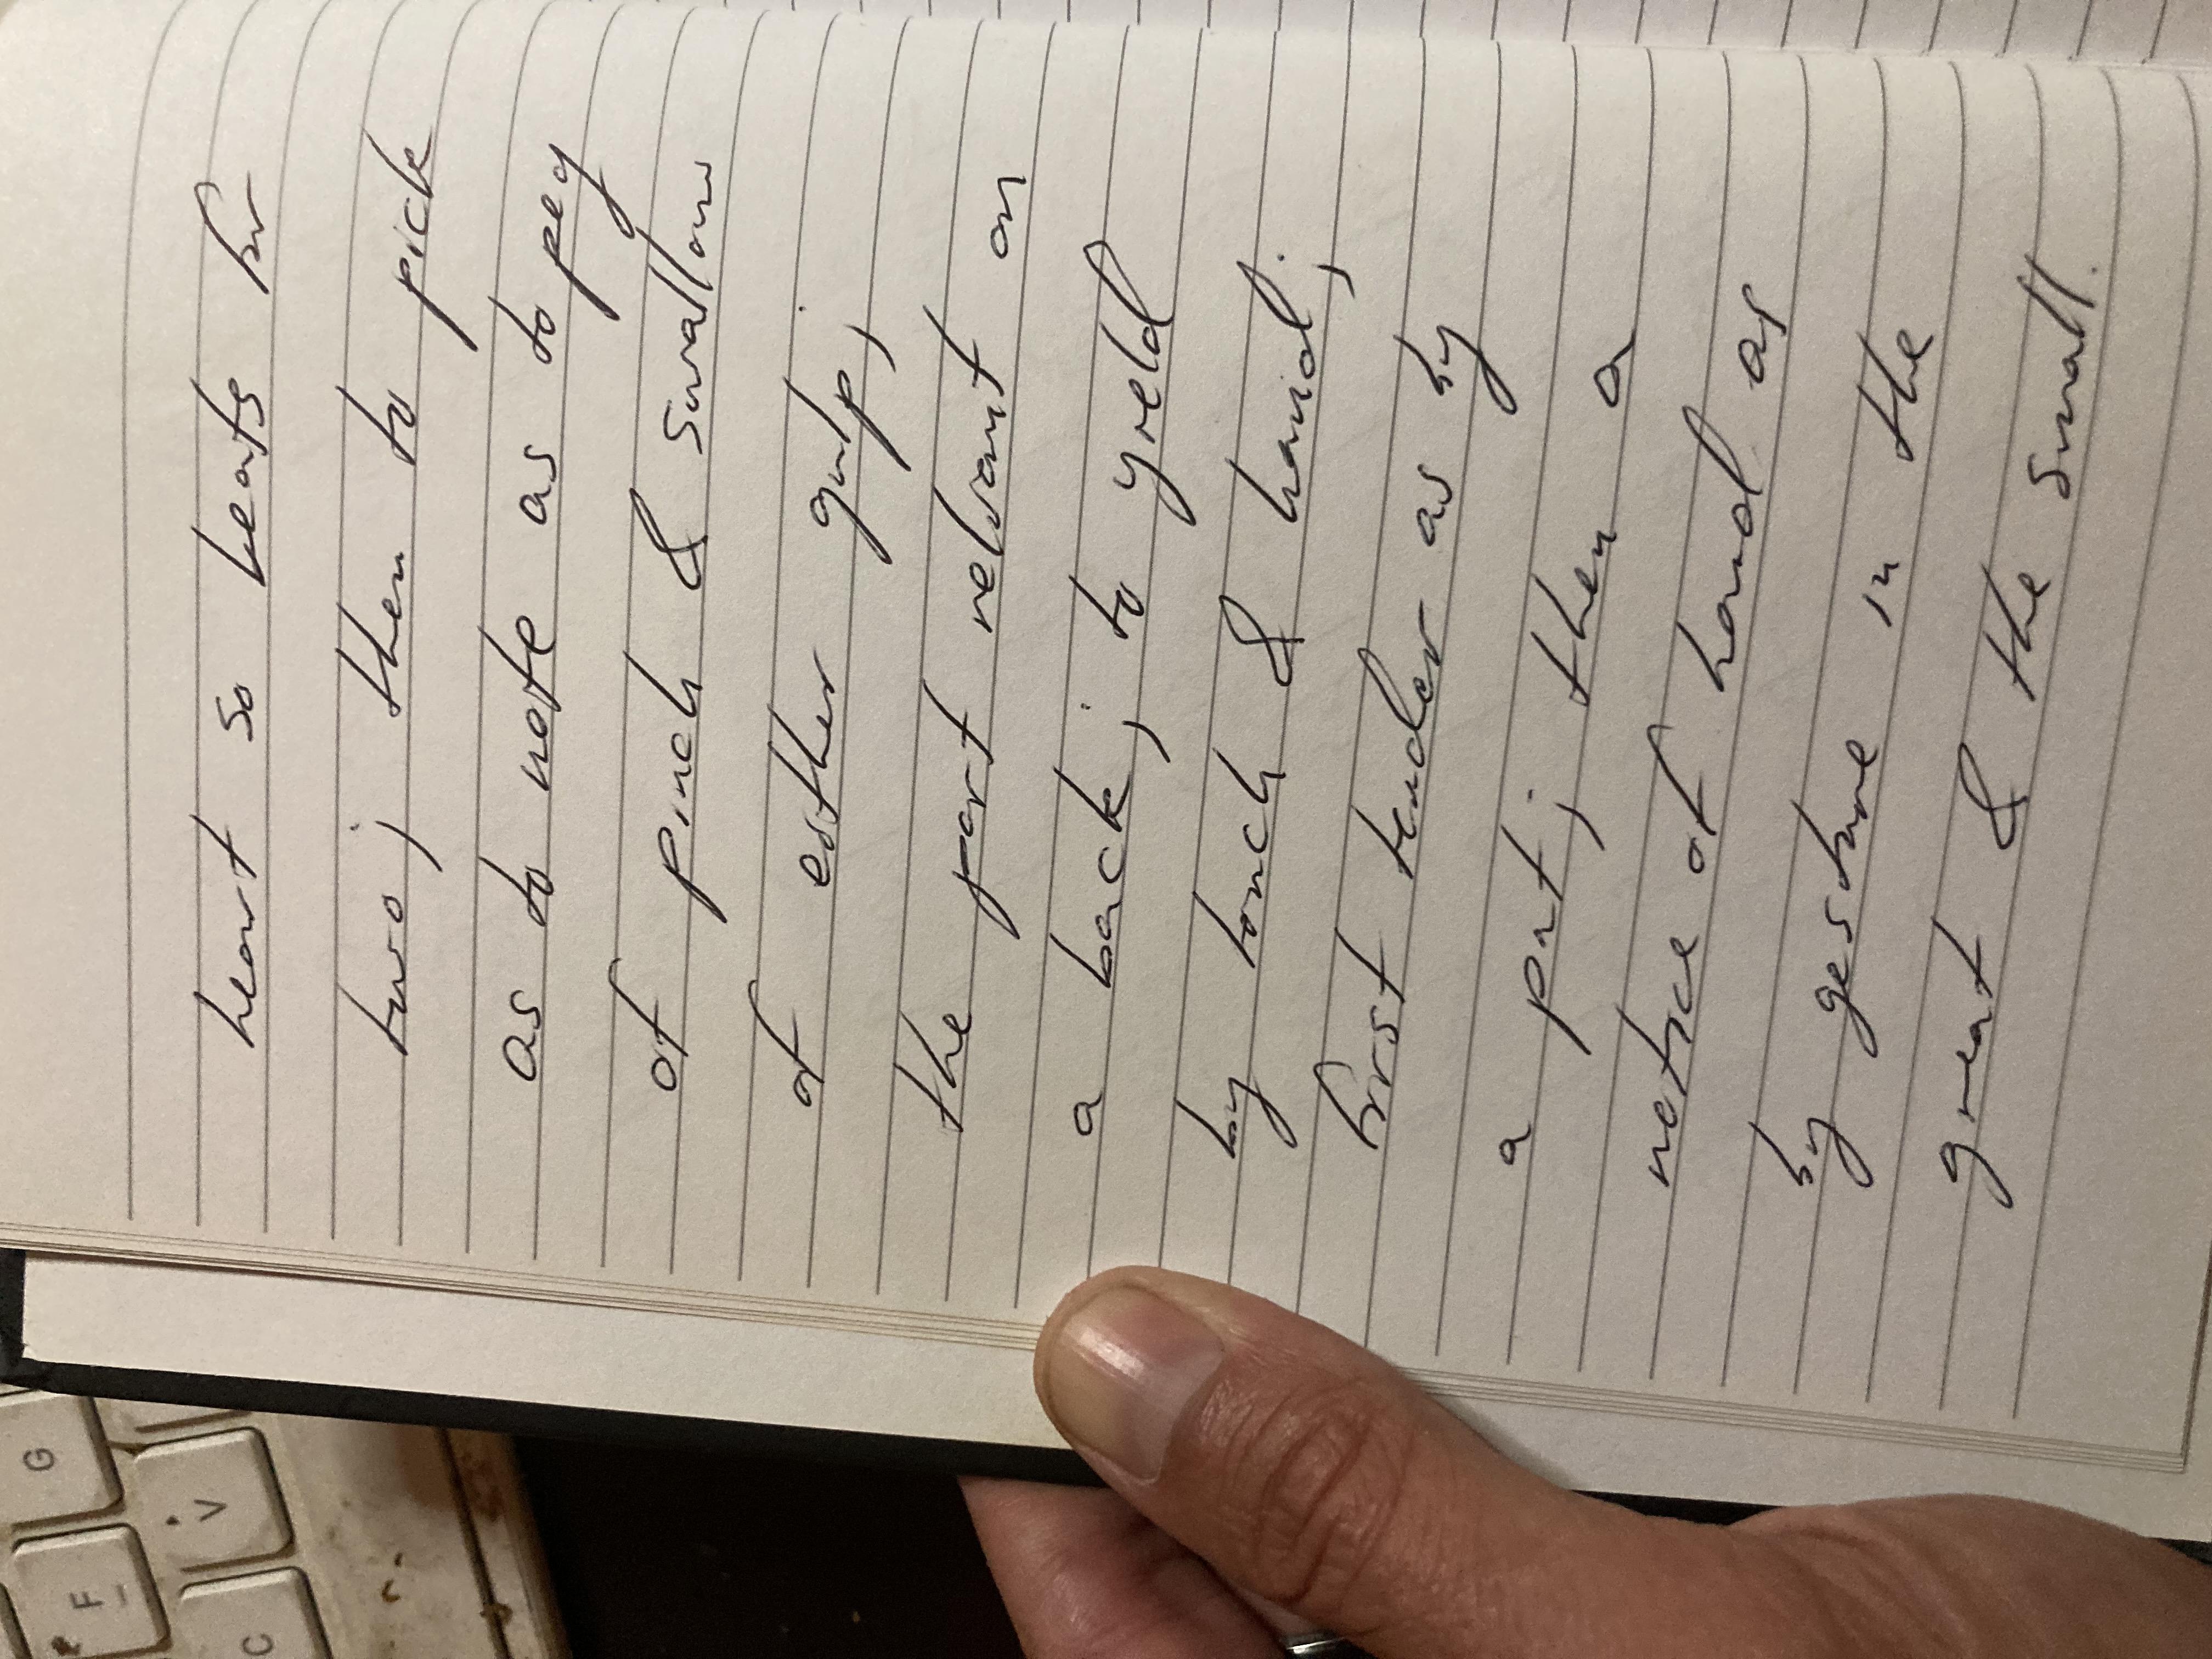 heart so beats for
two; then to pick
as to note as to peg
of pinch & swallow
of either gulp;
the part relevant on
a back; to yield
by touch & hand;
first tender as by
a pat; then a
notice of hand as
by gesture in the
great & the small.
G
V
F
C